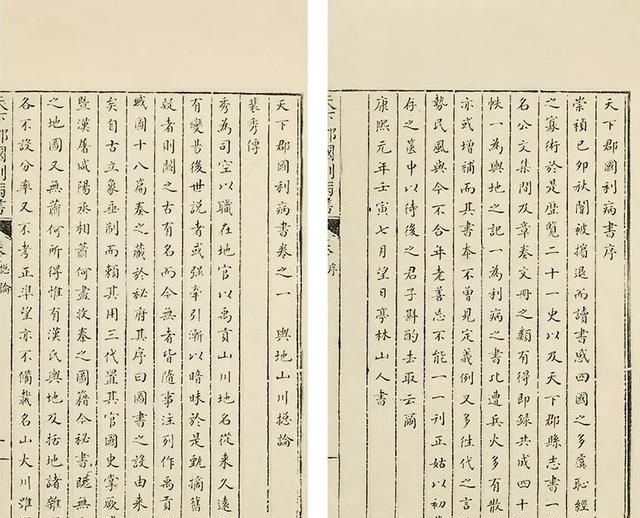 天下郡國利病書序
崇禎己卯秋闈被擯退而讀書感四國之多虞恥經
之寡術於是歷覽二十一史以及天下郡縣志書一
名公文集間及章奏文冊之類有得即錄共成四十
帙一為輿地之記一為利病之書比遭兵火多有散
亦或增補而其書本不曾見定義例又多往代之言
勢民風與今不合年老善忘不能一一刊正姑以初
存之篋中以待後之君子斟酌去取云爾
康熙元年壬寅七月望日亭林山人書
天下郡國利病書 卷 序
天下郡國利病書卷之一 輿地山川揔論
裴秀傳
秀為司空以職在地官以禹貢山川地名從來久遠
有變昜後世說者或强牽引漸以暗昧於是甄擿舊
疑者則闕之古有名而今無者皆隨事注列作禹貢
域圖十八篇奏之藏於秘府其序曰圖書之設由來
矣自古立象垂制而賴其用三代置其官國史掌厥
曁漢屠咸陽丞相蕭何盡收秦之圖籍今秘書既無
之地圖又無蕭何所得惟有漢氏輿地及括地諸雜
各不設分率又不考正準望亦不備載名山大川雖
天下郡國利病書 卷 揔論 一